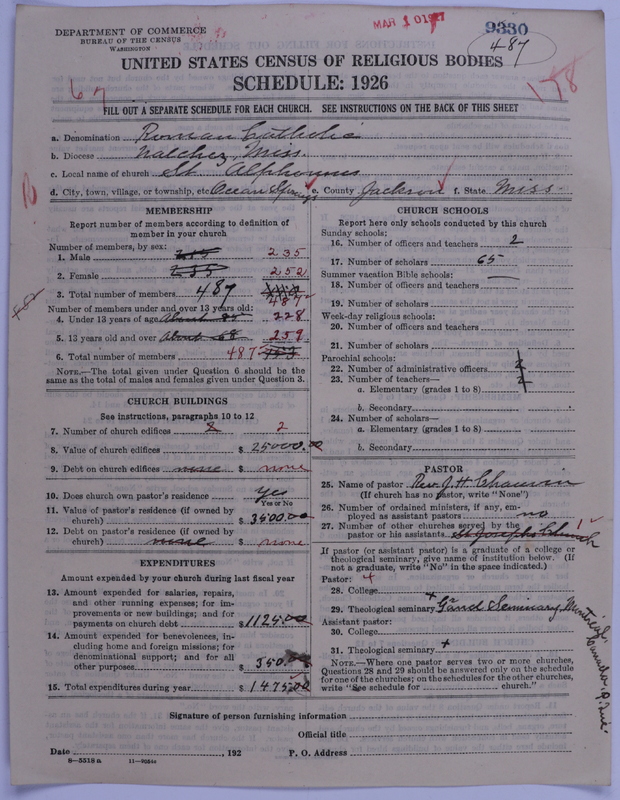 DEPARTMENT OF COMMERCE
BUREAU OF THE CENSUS
WASHINGTON
MAR 10 1927
9330
487
178
67
UNITED STATES CENSUS OF RELIGIOUS BODIES
SCHEDULE: 1926
FILL OUT A SEPARATE SCHEDULE FOR EACH CHURCH. SEE INSTRUCTIONS ON THE BACK OF THIS SHEET
a. Denomination Roman Catholic
b. Diocese Natchez, Miss.
c. Local name of church St. Alphonsus
d. City, town, village, or township, etc Ocean Springs e. County Jackson f. State Miss.
MEMBERSHIP
Report number of members according to definition of
member in your church
Number of members, by sex:
1. Male 235
2. Female 235 252
3. Total number of members 487 487
Number of members under and over 13 years old:
4. Under 13 years of age 228
5. 13 years old and over about 68 259
6. Total number of members 487
NOTE.—The total given under Question 6 should be
same as the total of males and females given under Question 3.
CHURCH BUILDINGS
See instructions, paragraphs 10 to 12
7. Number of church edifices 2
8. Value of church edifices $ 25000.00
9. Debt on church edifices none $ none
10. Does church own pastor's residence yes
Yes or No
11. Value of pastor's residence (if owned by
church) $ 3500.00
12. Debt on pastor's residence (if owned by
church) none $ none
EXPENDITURES
Amount expended by your church during last fiscal year
13. Amount expended for salaries, repairs,
and other running expenses; for im-
provements or new buildings; and for
payments on church debt $ 1125.00
14. Amount expended for benevolences, in-
cluding home and foreign missions; for
denominational support; and for all
other purposes $ 350.00
15. Total expenditures during year $ 1475.00
CHURCH SCHOOLS
Report here only schools conducted by this church
Sunday schools:
16. Number of officers and teachers 2
17. Number of scholars 65
Summer vacation Bible schools:
18. Number of officers and teachers
19. Number of scholars
Week-day religious schools:
20. Number of officers and teachers
21. Number of scholars
Parochial schools:
22. Number of administrative officers
23. Number of teachers—
a. Elementary (grades 1 to 8)
b. Secondary
24. Number of scholars—
a. Elementary (grades 1 to 8)
b. Secondary
PASTOR
25. Name of pastor Rev. J. H. Chauvin
(If church has no pastor, write "None")
26. Number of ordained ministers, if any, em-
ployed as assistant pastors no
27. Number of other churches served by the 1
pastor or his assistants St. Josephs Church
If pastor (or assistant pastor) is a graduate of a college or
theological seminary, give name of institution below. (If
not a graduate, write "No" in the space indicated.)
Pastor:
28. College
29. Theological seminary Grand Seminary, Montreal, Canada
Assistant pastor:
30. College
31. Theological seminary
NOTE.—Where one pastor serves two or more churches,
Questions 28 and 29 should be answered only on the schedule
for one of the churches; on the schedules for the other churches,
write "See schedule for church."
Signature of person furnishing information
Official title
Date , 192 P. O. Address
8—5518 a 11—9054